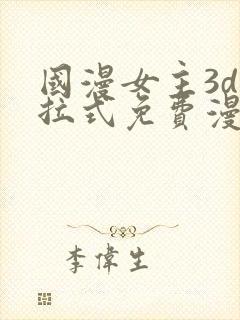 國漫女主3d
拉式免費漫
李偉生